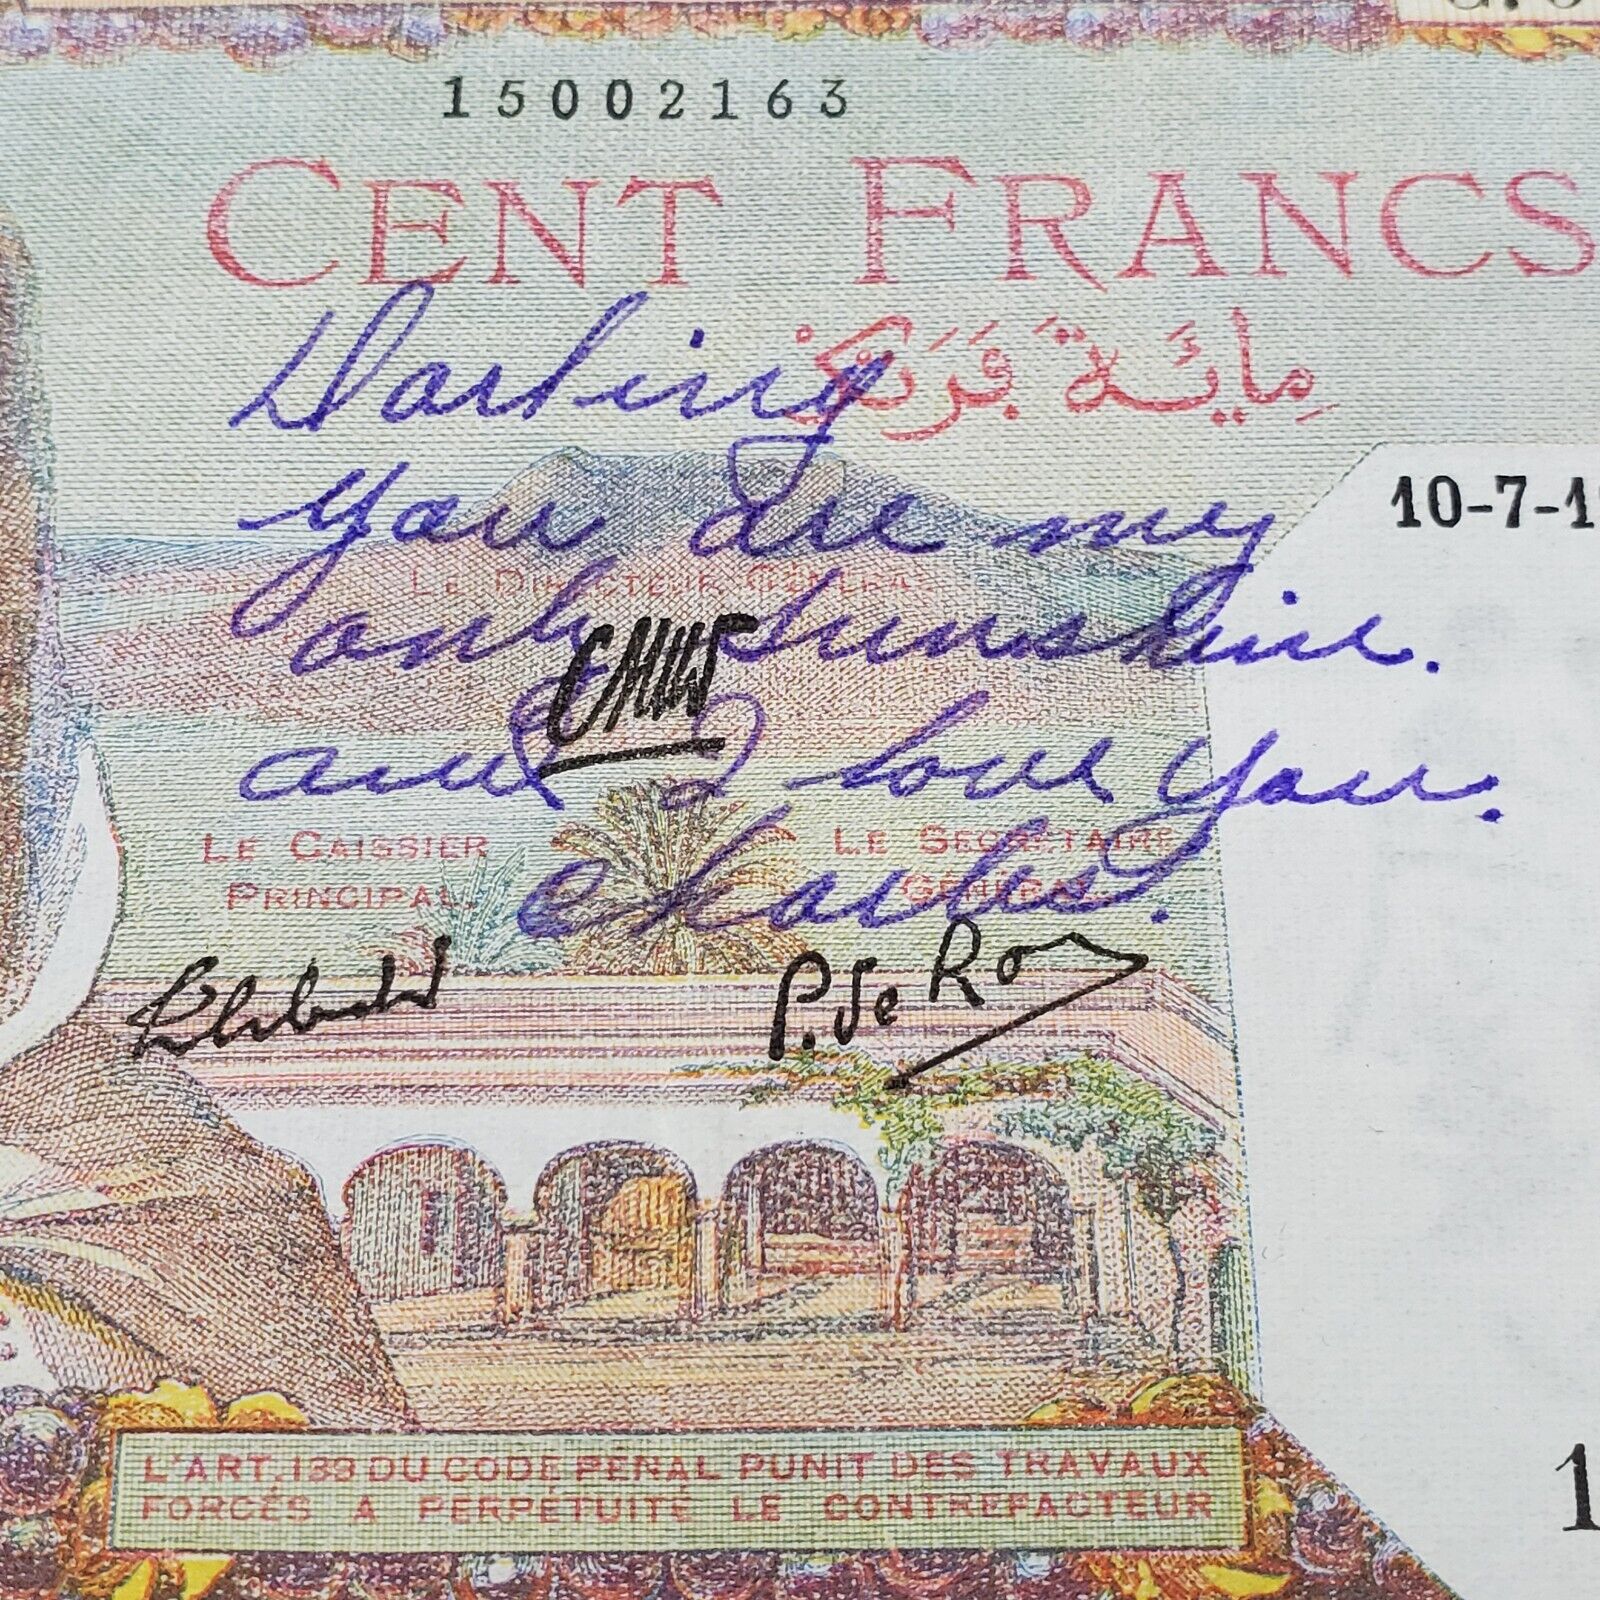 15002163
CENT FRANCS
Darling
مِائَةُ فَرَنْكٍ
you are my
10-7-1
LE DIRECTEUR GÉNÉRAL
only sunshine.
and I love you.
LE CAISSIER
PRINCIPAL
LE SECRÉTAIRE
GÉNÉRAL
Charles.
P. de Ro
L'ART. 139 DU CODE PÉNAL PUNIT DES TRAVAUX
FORCÉS A PERPÉTUITÉ LE CONTREFACTEUR
1